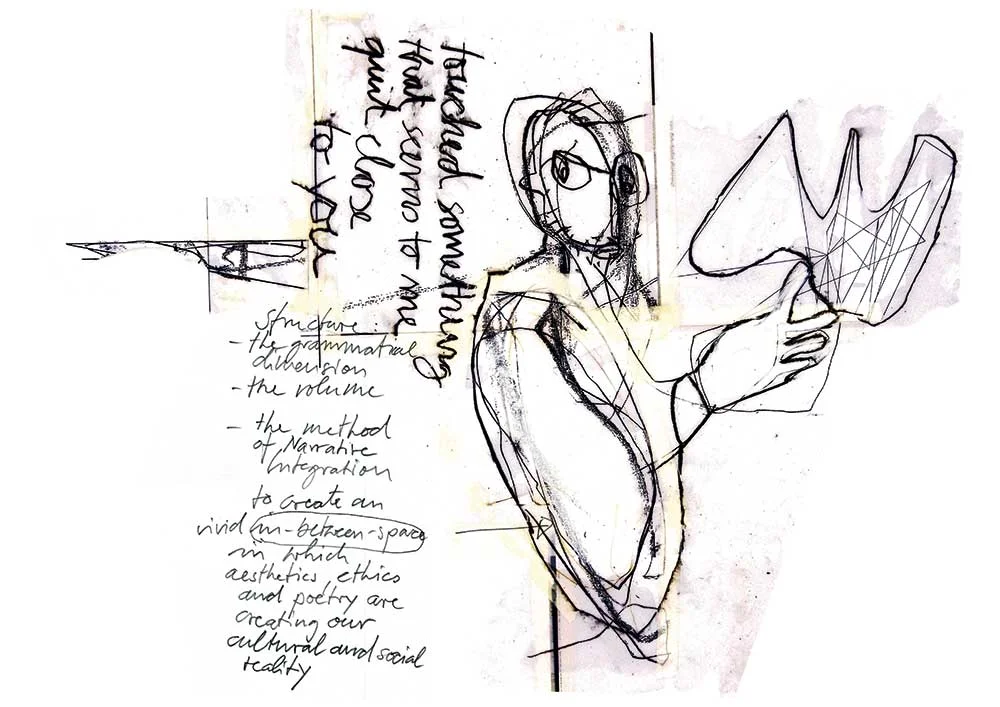 touched something
that seems to me
quit close
to you
Structure:
- the grammatical
dimension
- the volume
- the method
of Narrative
Integration
to create an
vivid in-between-space
in which
aesthetics, ethics
and poetry are
creating our
cultural and social
reality